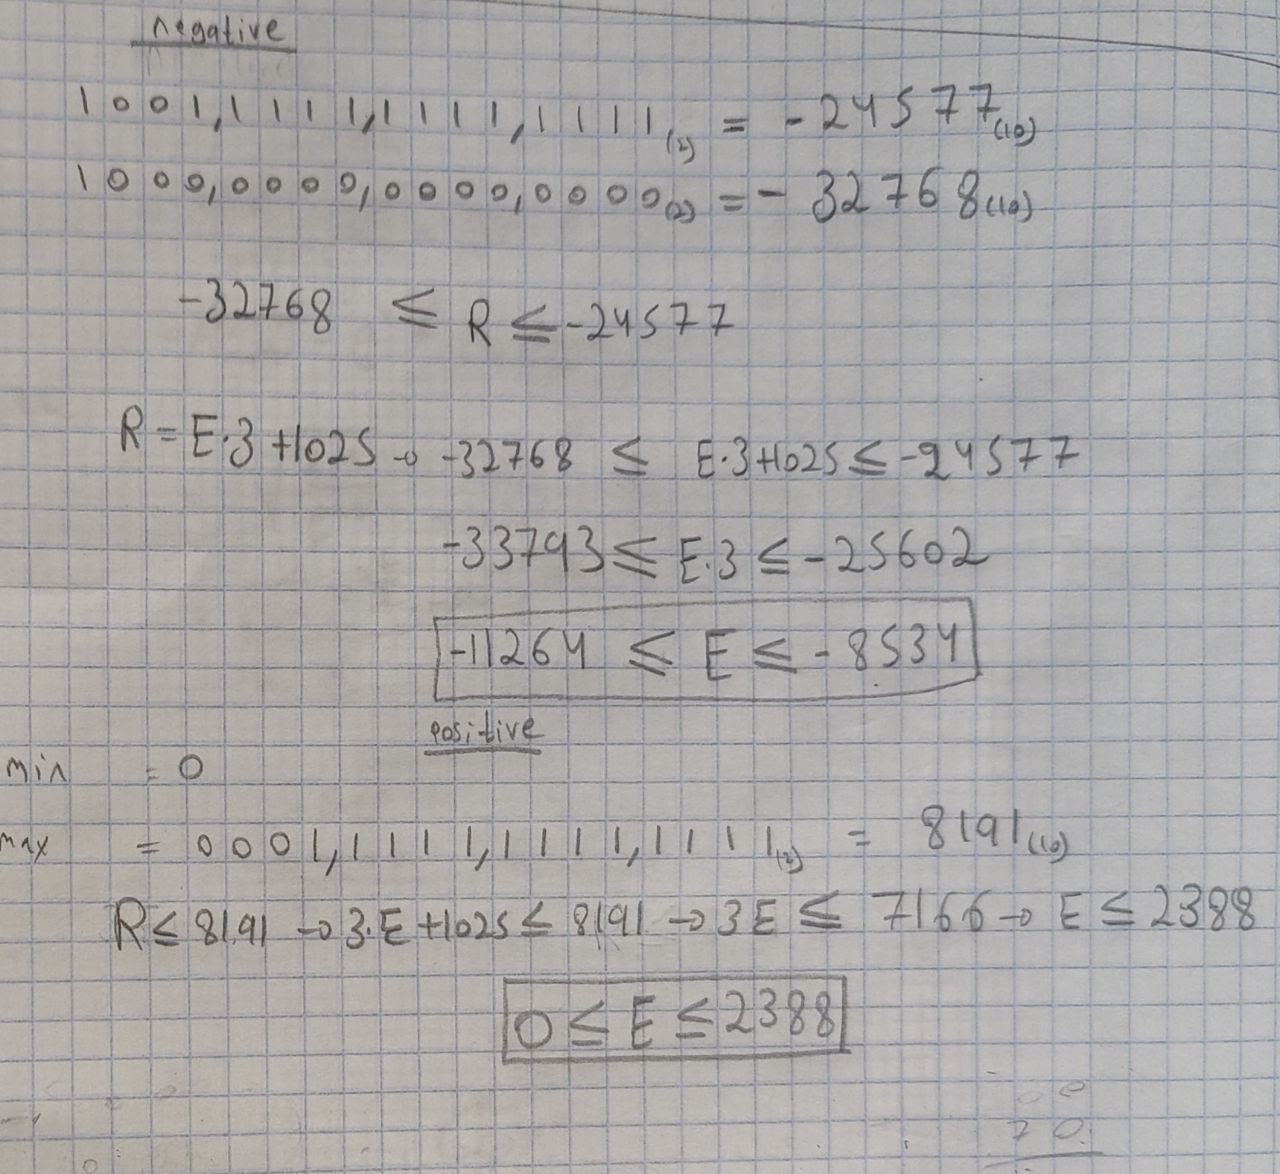 negative
1001,1111,1111,1111(2) = -24577(10)
1000,0000,0000,0000(2) = -32768(10)
-32768 ≤ R ≤ -24577
R = E·3 +1025 → -32768 ≤ E·3+1025 ≤ -24577
-33793 ≤ E·3 ≤ -25602
-11264 ≤ E ≤ -8534
positive
min = 0
max = 0001,1111,1111,1111(2) = 8191(10)
R ≤ 8191 → 3·E +1025 ≤ 8191 → 3E ≤ 7166 → E ≤ 2388
0 ≤ E ≤ 2388